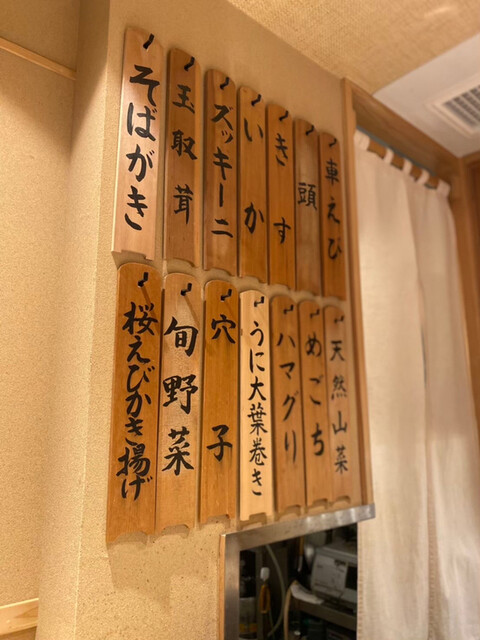 車えび
頭
きす
いか
ズッキーニ
玉取茸
そばがき
天然山菜
めごち
ハマグリ
うに大葉巻き
穴子
旬野菜
桜えびかき揚げ